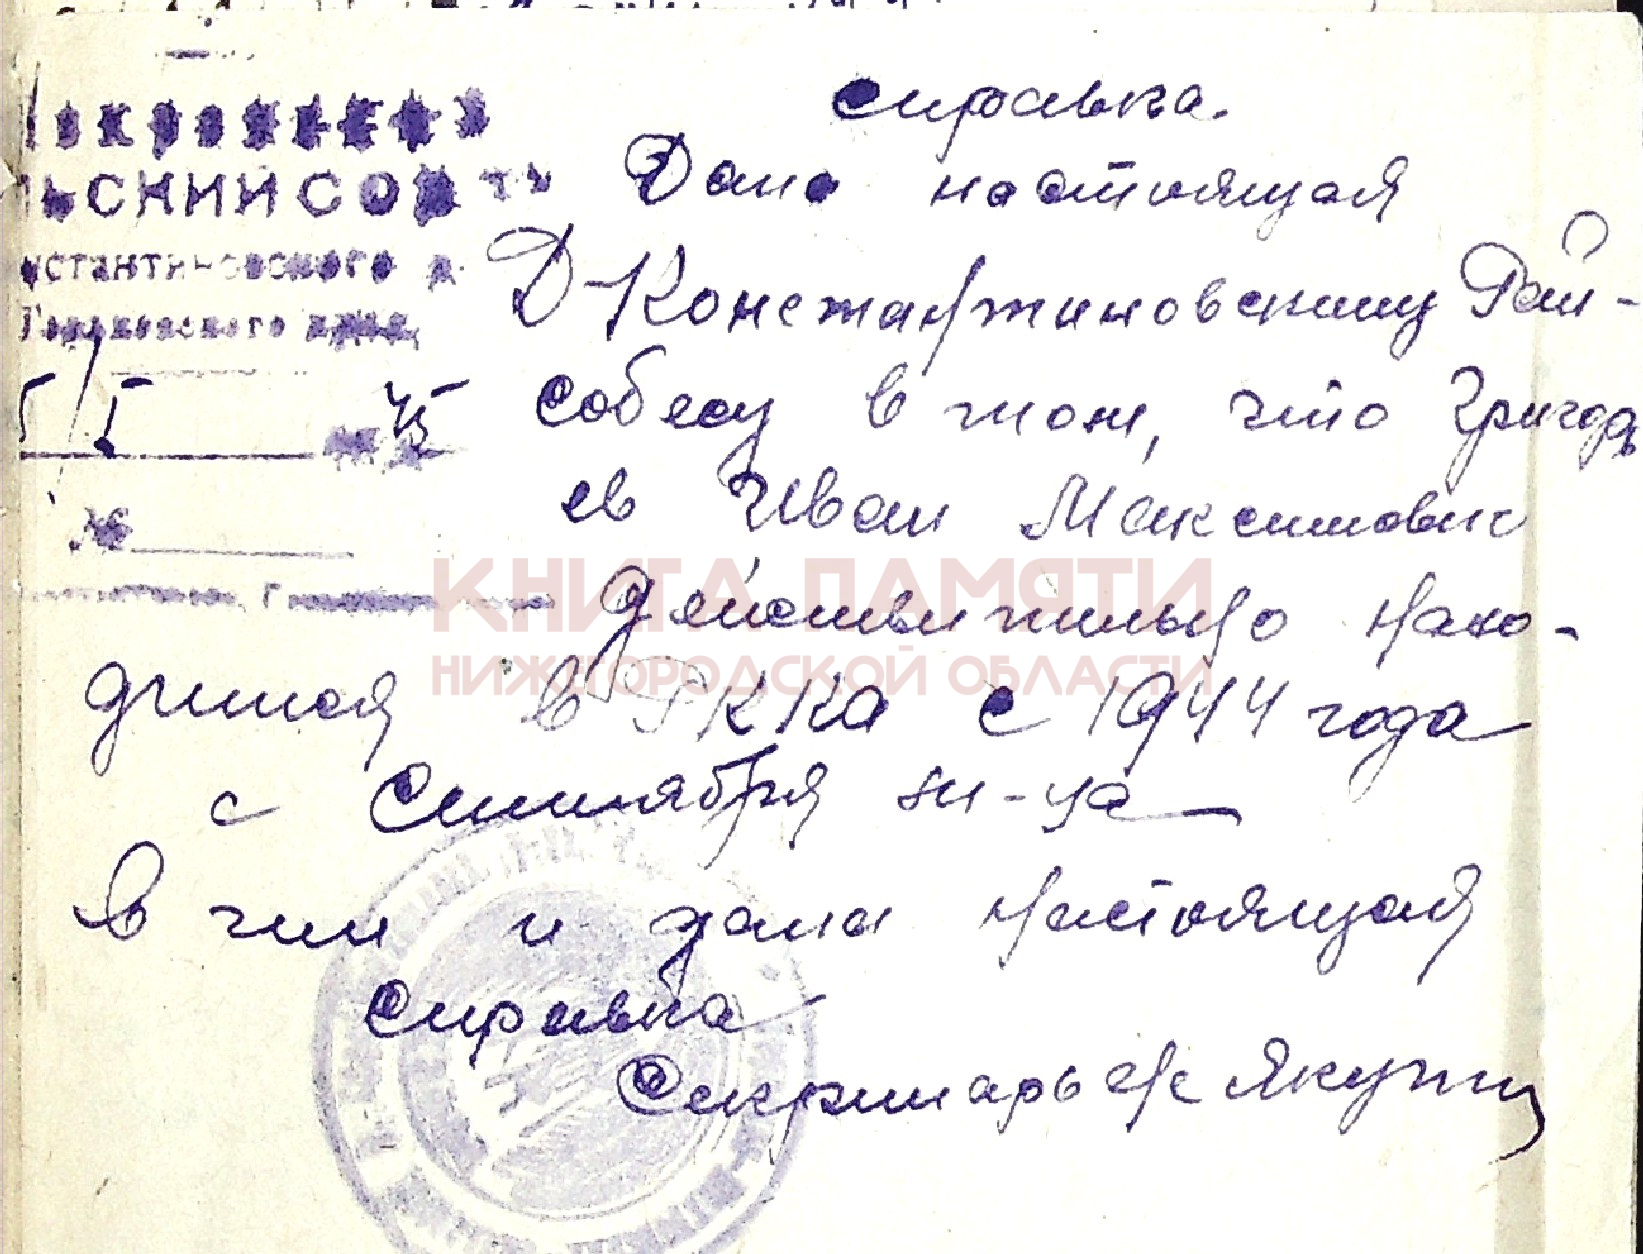 Покровский
льский Сов
нстантиновского
Горьковского
5/I 45
№
справка.
Дана настоящая
Д-Константиновскому Рай-
собесу в том, что Григорь
ев Иван Максимович
действительно нахо-
дится в РККА с 1944 года
с Сентября м-ца
в чем и дана настоящая
справка
Секретарь Якути
КНИГА ПАМЯТИ
НИЖЕГОРОДСКОЙ ОБЛАСТИ